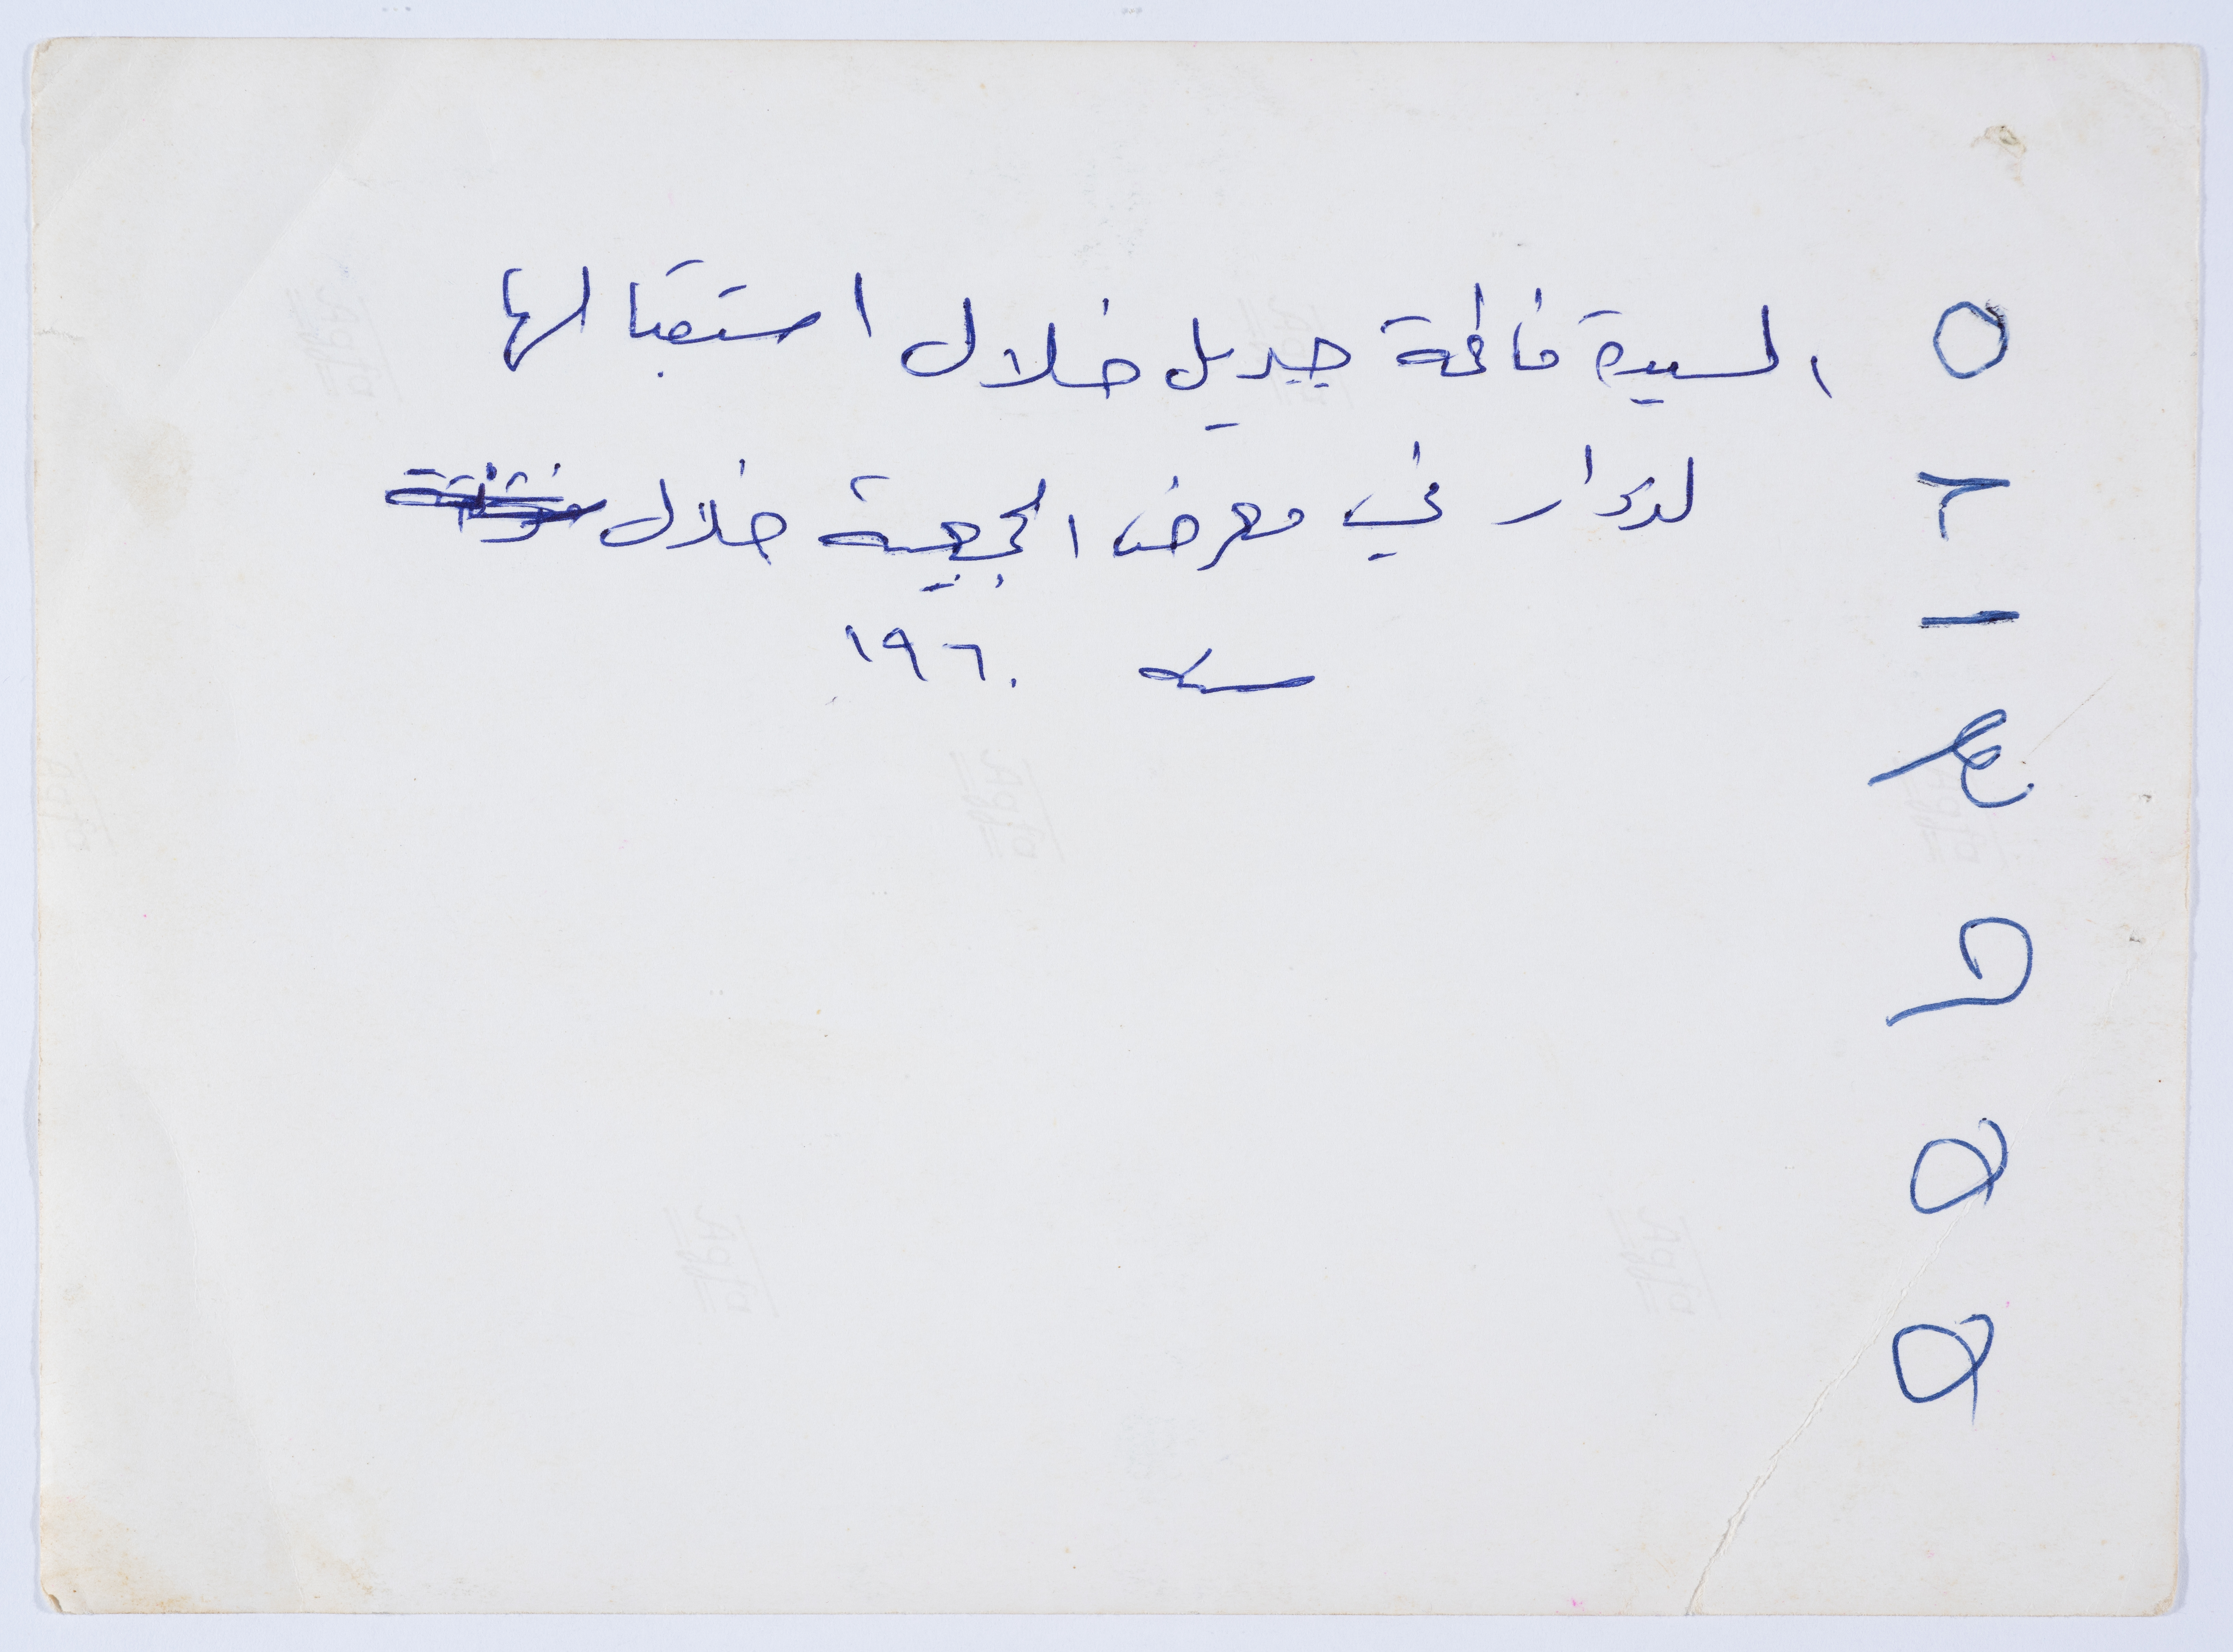 السيدة فاطمة جبريل خلال استقبالها
لزوار في معرض الجمعية خلال
سنة ١٩٦٠